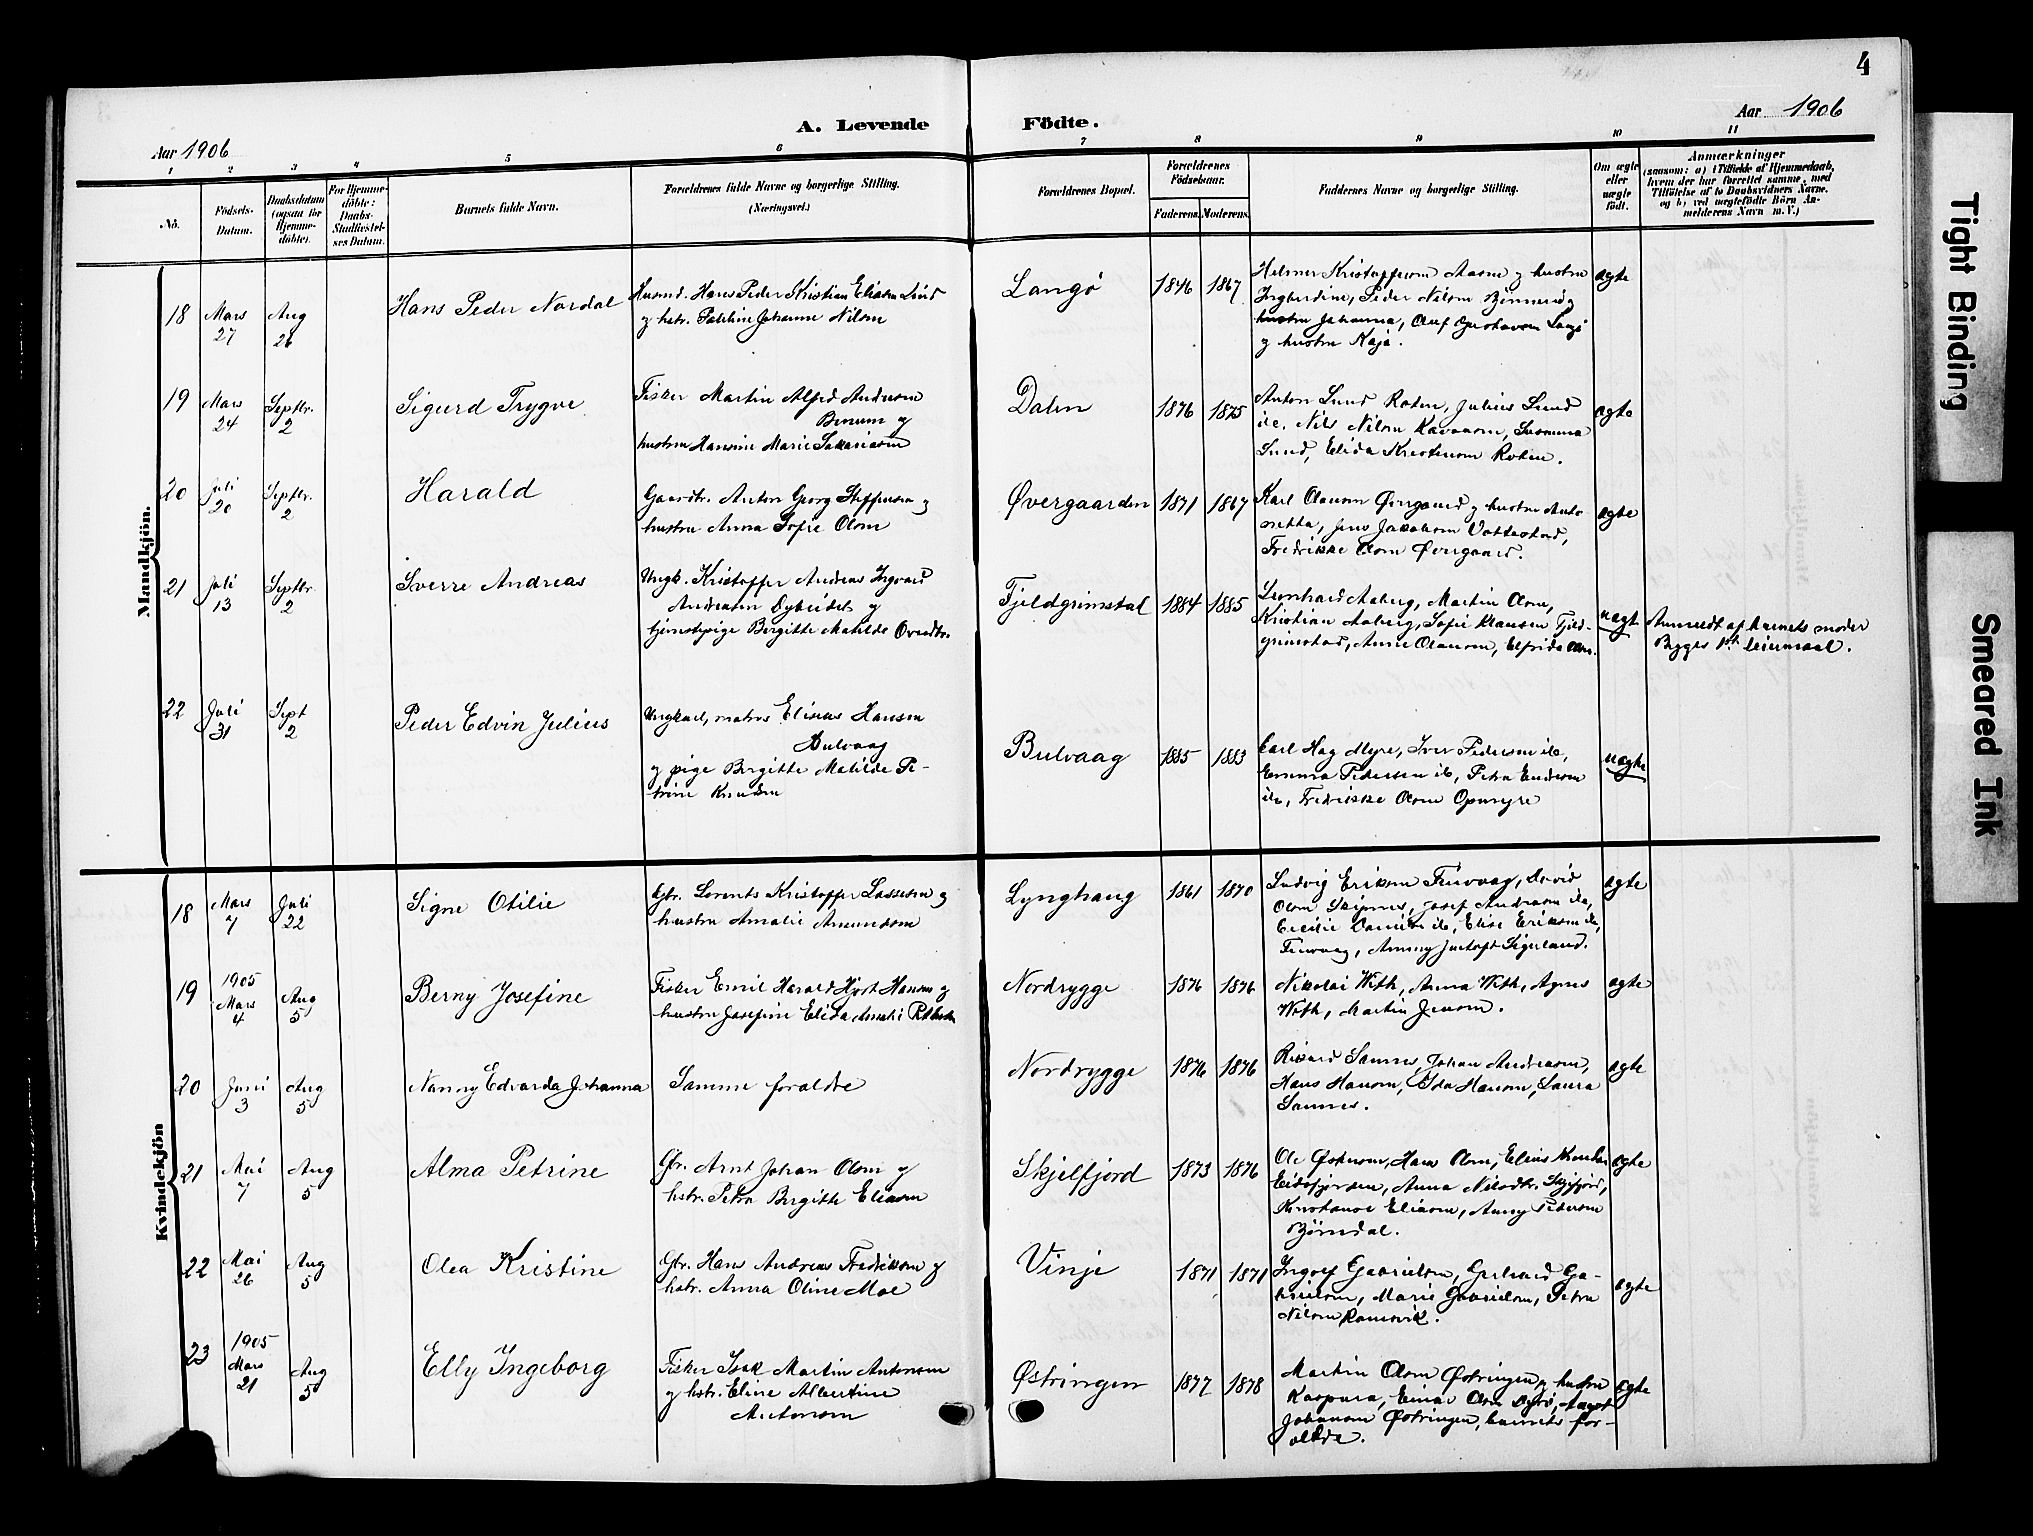 4
Aar 1906
A. Levende Födte.
Aar 1906
1 2 3 4 5 6 7 8 9 10 11
No.
Födsels-Datum.
Daabsdatum (ogsaa for Hjemmedöbte).
For Hjemmedöbte: Daabs-Stadfæstelses Datum.
Barnets fulde Navn.
Forældrenes fulde Navne og borgerlige Stilling.
(Næringsvei.)
Forældrenes Bopæl.
Forældrenes Födselsaar.
Faderens. Moderens.
Faddernes Navne og borgerlige Stilling.
Om ægte eller uægte födt.
Anmærkninger
(saasom: a) i Tilfælde af Hjemmedaab,
hvem der har forrettet samme, med
Tilföielse af to Daabsvidners Navne.
og b) ved uægtefödte Börn An-
melderens Navn m. V.)
Mandkjön.
18 Mars 27 Aug 26
Hans Peder Nordal
Husmd. Hans Peder Kristian Eliasen Lind
og hstr. Johanne Nilsen
Langö 1876 1867
Helmer Kristoffersen Aasen og hustru
Ingberdine, Peder Nilsen
hustru Johanna, Oluf Gustavsen Langö
og hustru Kaja.
ægte
19 Mars 24 Septbr. 2
Sigurd Trygve
Fisker Martin Alfred Andersen
Benum og
hustru Hansine Marie Sakariasen
Dalen 1876 1875
Anton Lund Roten, Julius Lund
ib., Nils Nilsen, Susanna
Lund, Elida Kristensen Roten.
ægte
20 Juli 20 Septbr. 2
Harald
Gaardbr. Anton Georg Steffensen og
hustru Anna Sofie Olsen
Øvergaarden 1871 1867
Karl Olausen Övergaard og hustru Anto-
netta, Jens Jakobsen Vottestad,
Fredrikke Olsen Övergaard.
ægte
21 Juli 13 Septbr. 2
Sverre Andreas
Ungk. Kristoffer Andreas Ingvard
Andreasen og
tjenestepige Birgitte Matilde
Fjeldgrimstad 1884 1885
Leonhard Aaberg, Martin Olsen,
Kristian Aaberg, Sofie Klausen Fjeld-
grimstad, Anne Olausen, Elfrida Olsen.
uægte
Anmeldt af barnets moder
Begges 1st. leiermaal.
22 Juli 31 Sept 2
Peder Edvin Julius
Ungkarl, matros Elisius Hansen
Bulvaag
og pige Birgitte Matilde Pe-
trine Knudsen
Bulvaag 1885 1883
Carl Hag Myre, Iver Pedersen ib,
Emma Pedersen ib, Petra Endresen
ib, Fredrikke Olsen Opmyre
uægte
Kvindekjön
18 Mars 7 Juli 22
Signe Otilie
Gbr. Lorents Kristoffer Lassesen og
hustru Amalie Amundsen
Lynghaug 1861 1870
Ludvig Eriksen Finvaag, David
Olsen Skipnes, Josef Andreasen ib,
Cecilie ib, Elise Eriksen ib,
Finvaag, Ammy Sigerland.
ægte
19 1905 Mars 4 Aug 5
Berny Josefine
Fisker Emil Harald Hjort Hansen og
hustru Josefine Elida Amalie
Nordrygge 1876 1876
Nikolai With, Anna With, Agnes
With, Martin Jensen.
ægte
20 Juni 3 Aug 5
Nanny Edvarda Johanna
Samme foraldre
Nordrygge 1876 1876
Rikard Sannes, Johan Andreasen,
Hans Hansen, Ida Hansen, Laura
Sannes.
ægte
21 Mai 7 Aug 5
Alma Petrine
Gbr. Arnt Johan Olsen og
hstr. Petra Birgitte Eliasen
Skjelfjord 1873 1876
Ole Østensen, Hans Olsen, Elius Knudsen
Eidsfjorden, Anna Nilsdtr. Skjelfjord,
Konstance Eliasen, Anny Pedersen
Björndal.
ægte
22 Mai 26 Aug 5
Olea Kristine
Gbr. Hans Andreas Fredriksen og
hstr. Anna Oline Moe
Vinje 1871 1871
Ingolf Gabrielsen, Gerhard Ga-
brielsen, Marie Gabrielsen, Petra
Nilsen Ramsvik.
ægte
23 1905 Mars 21 Aug 5
Elly Ingeborg
Fisker Isak Martin Antonsen
og hstr. Eline Albertine
Antonsen
Østringen 1877 1878
Martin Olsen Östringen og hustru
Kaspara, Einar Olsen, Aagot
Johansen Östringen, barnets for-
ældre.
ægte
Tight Binding
Smeared Ink